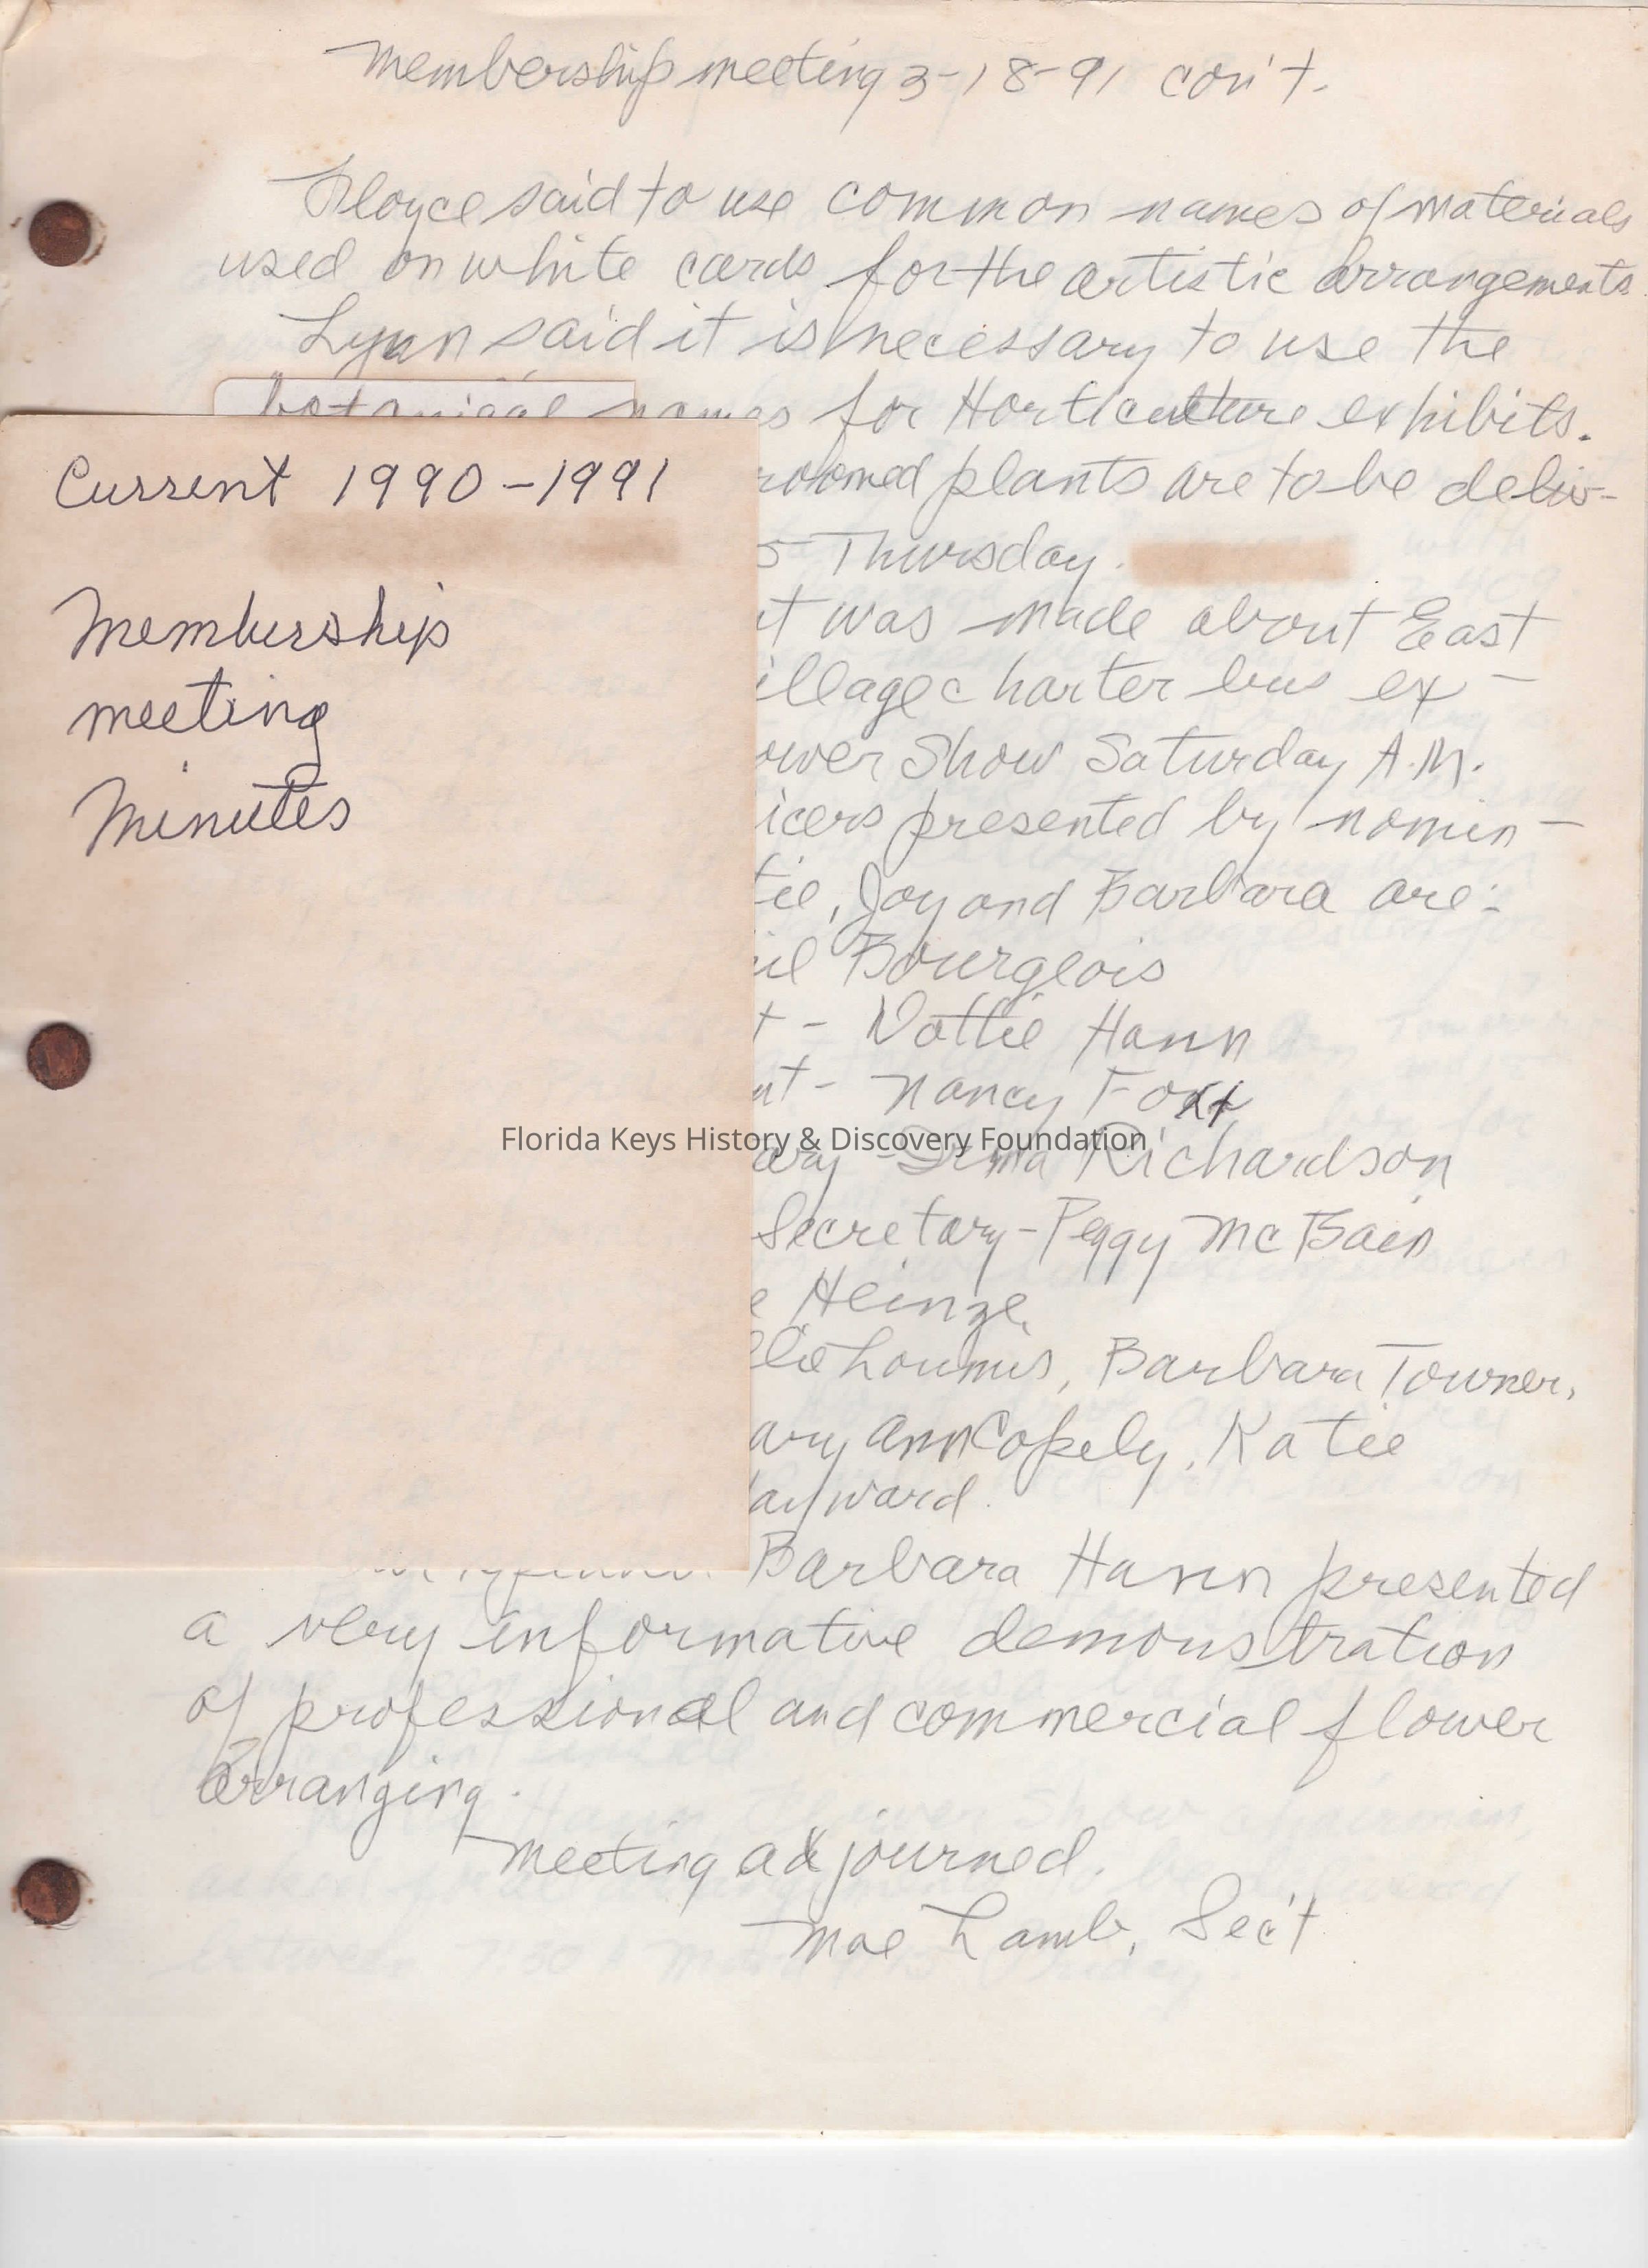 Membership meeting 3-18-91 con't.
Floyce said to use common names of materials
used on white cards for the artistic arrangements.
Lynn said it is necessary to use the
botanical names for Horticulture exhibits.
roomed plants are to be deliv-
5 Thursday.
t was made about East
illage charter bus ex-
ower Show Saturday A.M.
icers presented by nomin-
tie, Joy and Barbara are:
il Bourgeois
t - Dottie Hann
nt - Nancy Foxx
ary - Irma Richardson
Secretary - Peggy McBain
e Heinze
llie Loumis, Barbara Towner,
ary Ann Copely, Katie
ayward.
Barbara Hann presented
a very informative demonstration
of professional and commercial flower
arranging.
Meeting adjourned.
Mae Lamb, Sec't
Current 1990-1991
Membership
meeting
Minutes
Florida Keys History & Discovery Foundation